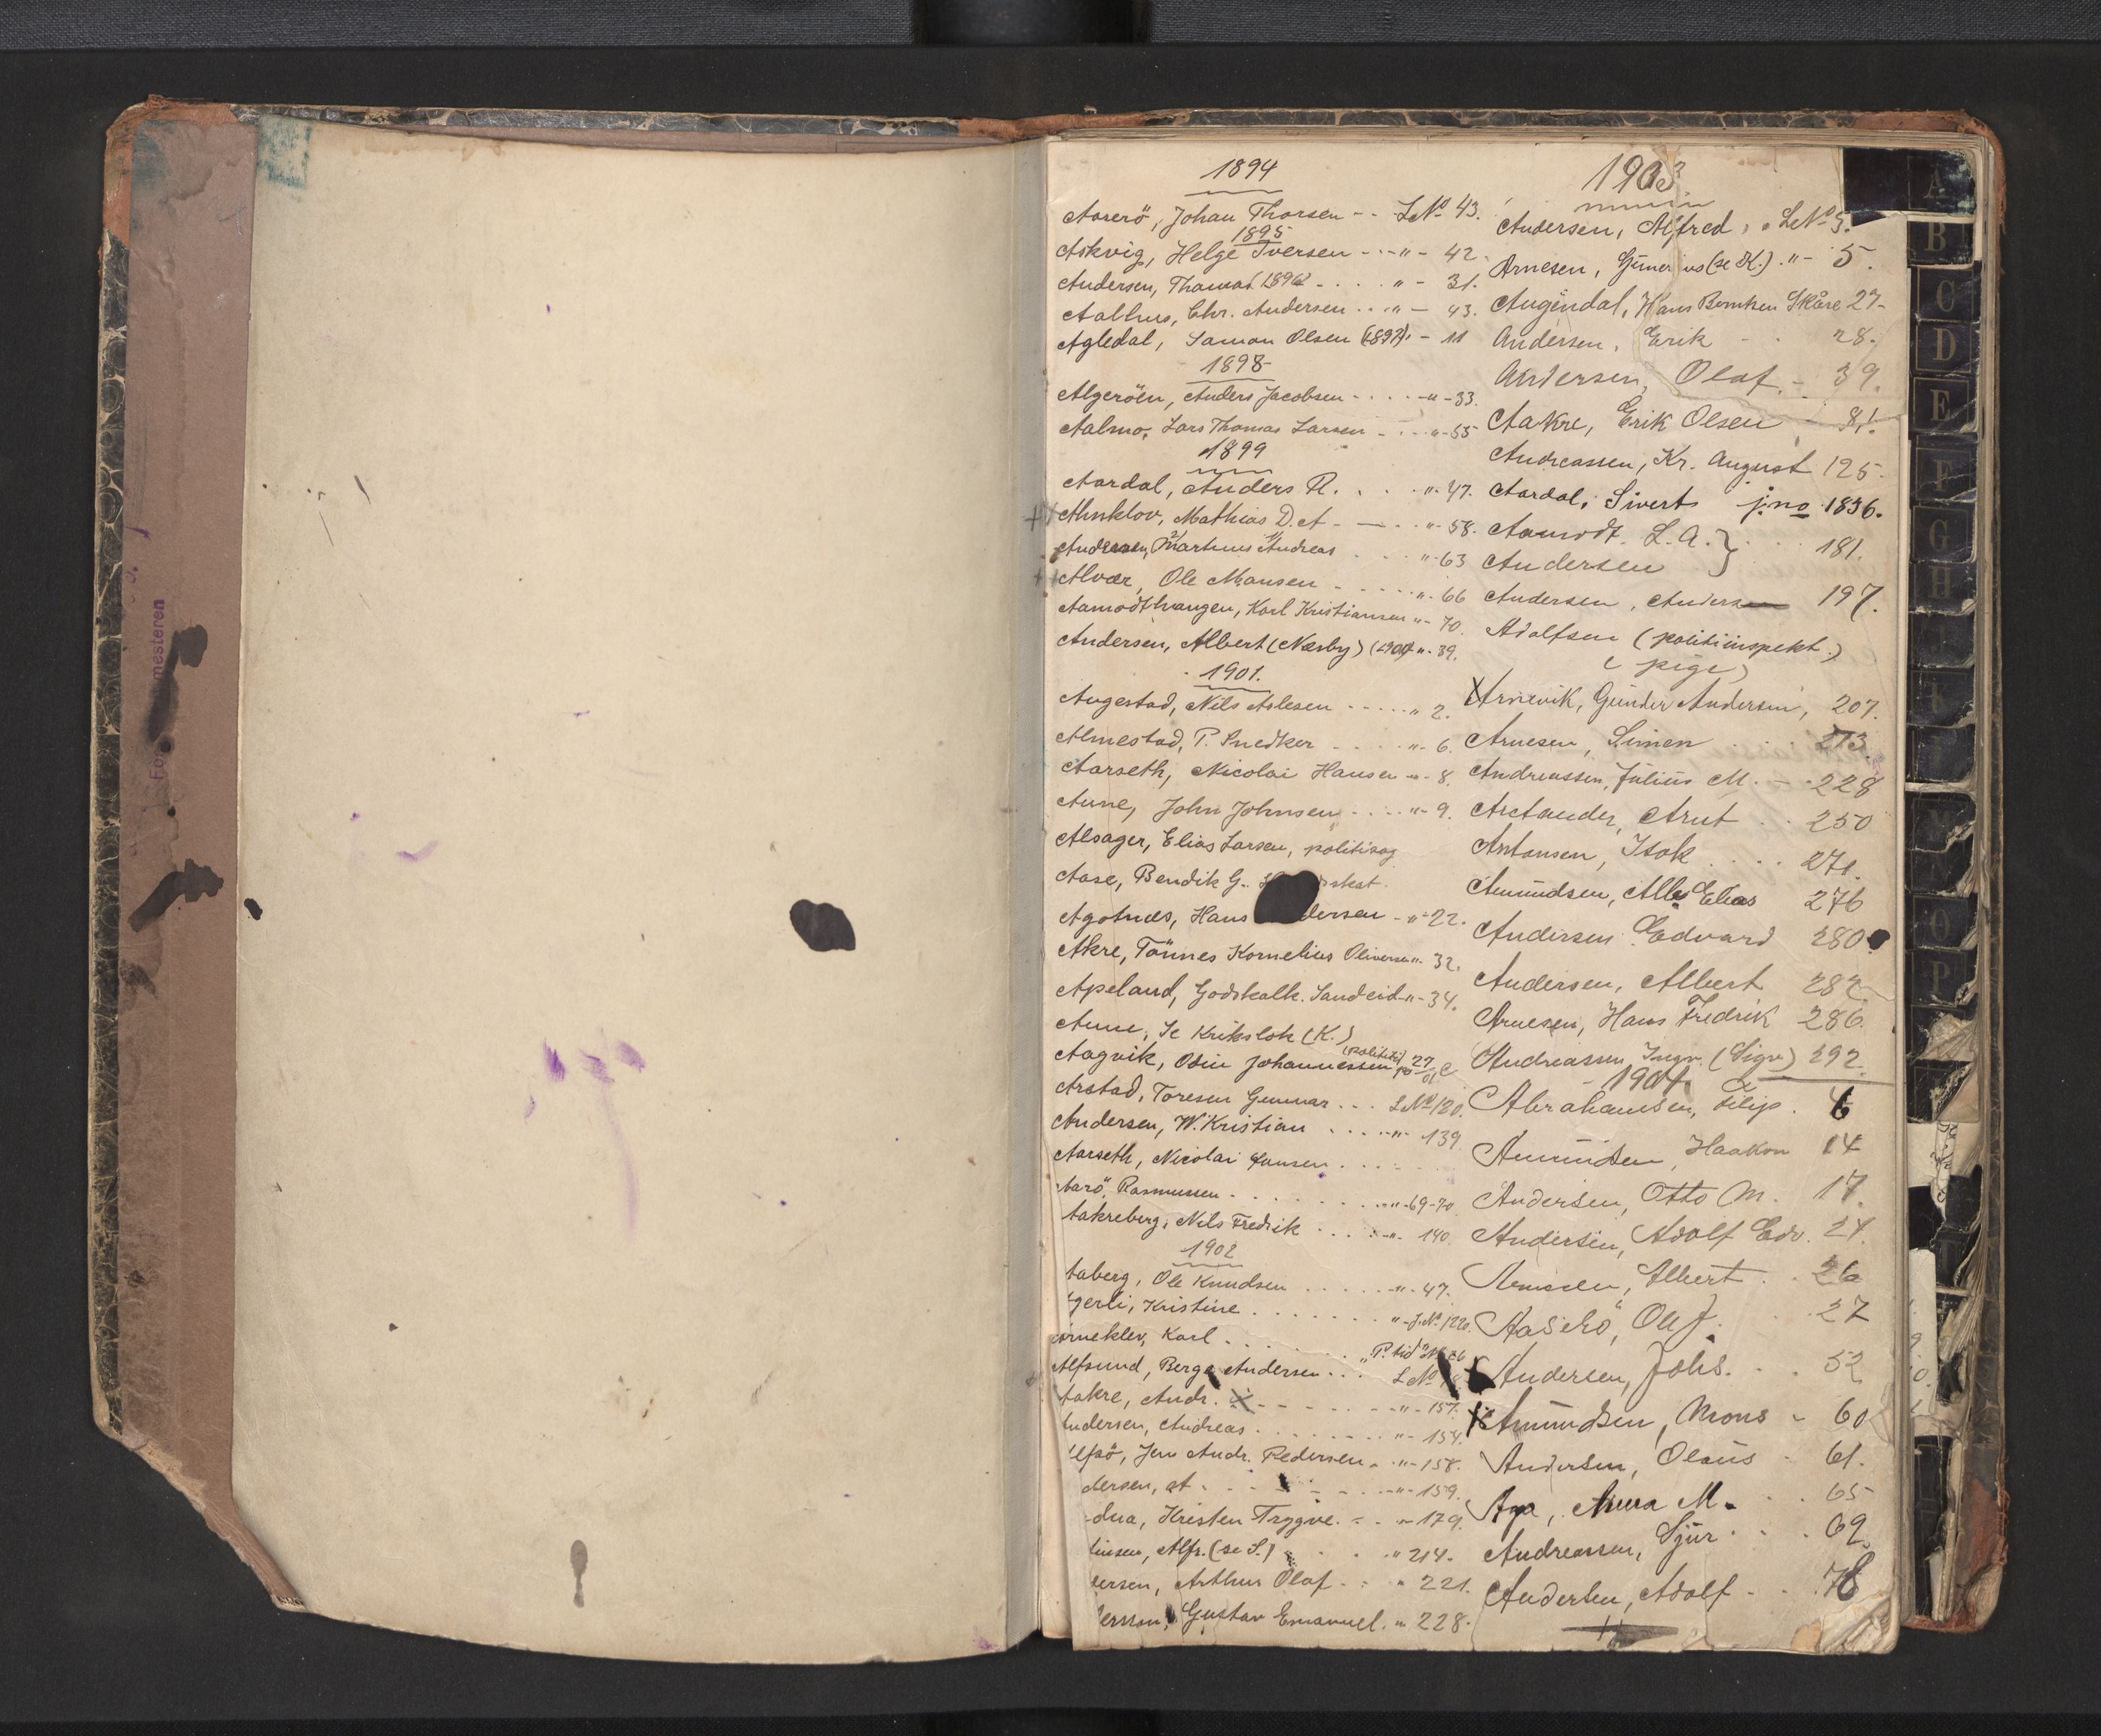 1894
Aarerö, Johan Thorsen - - LNº 43.
1895
Askvig, Helge Iversen - - - " - 42.
Andersen, Thomas 1896 - . . . . " - 31.
Aalhus, Chr. Andersen . . . " - 43.
Agledal, Samson Olsen (1897). - 11
1898
Algeröen, Anders Jacobsen - . . . - " - 33.
Aalmo, Lars Thomas Larsen - . . - " - 55
1899
Aardal, Anders R. . . . . " - 47.
Ahnklov, Mathias D. A - — . . " - 58.
Andersen, Martinus Andreas . . . . " - 63
Alvær, Ole Monsen - . . . . . " - 66
Aamodthaugen, Karl Kristiansen " - 70.
Andersen, Albert (Næsby) (1900) " - 39.
1901.
Augestad, Nils Aslesen - . . . . " 2.
Almestad, P. Snedker . . . . " - 6.
Aarseth, Nicolai Hansen - " - 8.
Aune, John Johnsen . . . . " - 9.
Alsager, Elias Larsen, politisag
Aase, Bendik G.. skat.
Agotnes, Hans dersen - " - 22.
Akre, Tönnes Kornelius Oliversen " - 32.
Apeland, Godskalk. Sandeid - " - 34.
Aune, Se Krikslok (K.)
Aagvik, Odin Johannessen
Arstad, Toresen Gunnar . . . LNº 120.
Andersen, W. Kristian . . . . - " - 139
Aarseth, Nicolai Hansen . . . . . .
Aarö, Rasmussen - . . . . . . " - 69-70
Aakreberg, Nils Fredrik . . . . - " - 140.
1902
Aaberg, Ole Knudsen . . . . . - " - 47.
gerli, Kristine . . . . . . . " - J.Nº 1220.
örneklev, Karl - . . . . . . .
Alfsund, Berge Andersen . . . LNº
Aakre, Andr. X - - - - - - - " - 157.
Andersen, Andreas . . . . . . . . " - 154.
lfsö, Jens Andr. Pedersen . " - 158.
dersen, at . - . - - . - . - " - 159.
dna, Kristen Trygve. - . - " 179.
tinsen, Alfr. (se S.) . . . " 214.
ersen, Arthur Olaf . . . " 221.
ersson, Gustav Emanuel. " 228.
1903
Andersen, Alfred, " LNº 3.
Arnesen, Gunerius (se K.) . " - 5.
Augendal, Hans Berntsen Skåre 27-
Andersen, Erik - . 28.
Andersen, Olaf. - 39.
Aakre, Erik Olsen , 81.
Andreassen, Kr. August 125.
Aardal, Siverts j.no 1836.
Aamodt. L. A. }
Andersen } . . . 181.
Andersen, Anders 197.
Adolfsen (politiinspekt.)
( pige )
X Arnevik, Gunder Andersen, 207.
Arnesen, Simen . . . 213.
Andreassen, Julius M. - . 228
Arctander, Arnt . . 250
Antonsen, Isak . . . . 271.
Amundsen, Alb. Elias 276
Andersen Edvard 280
Andersen, Albert 282
Arnesen, Hans Fredrik 286.
Andreassen, Ingv. (Sigv.) 292.
1904
Abrahamsen, Filip . 6
Amundsen, Haakon 14
Andersen, Otto M. 17.
Andersen, Adolf Edv. 24.
Albert . . 26
Aaserö, Oluf. . . 27
Andersen, Johs. . . 52
X Amundsen, Mons - 60
Andersen, Olaus - 61.
Aga, Anna M. . . 65
Andreassen, Sjur . . . 69.
Andersen, Adolf - . . 78
A
B
C
D
E
F
G
H
O
P
mesteren